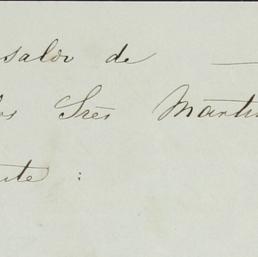 saldo de
los Srēs Martin
nte :